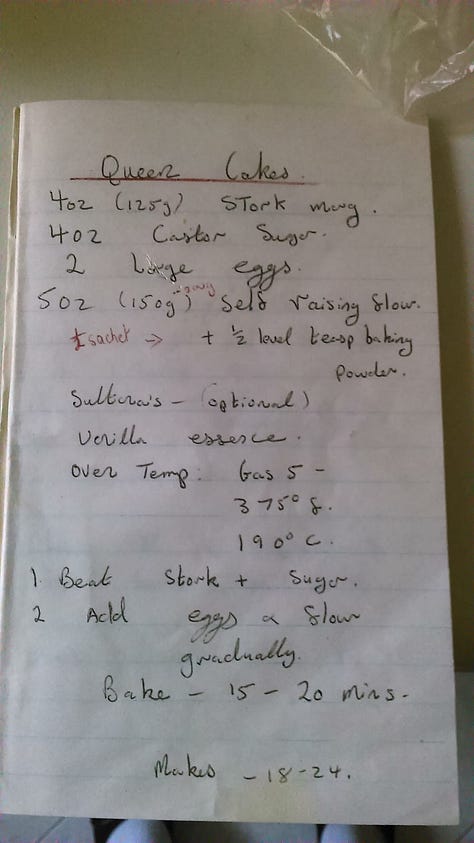 Queen Cakes.
4oz (125g) Stork marg.
4oz Castor Sugar.
2 Large eggs.
5oz (150g) Self raising flour.
sachet → + ½ level teasp baking
Powder.
Sultana's - (optional)
Vanilla essence.
Oven Temp: Gas 5 -
375° f.
190° C.
1. Beat Stork + Sugar.
2 Add eggs & flour
gradually.
Bake - 15 - 20 mins -
Makes - 18-24.